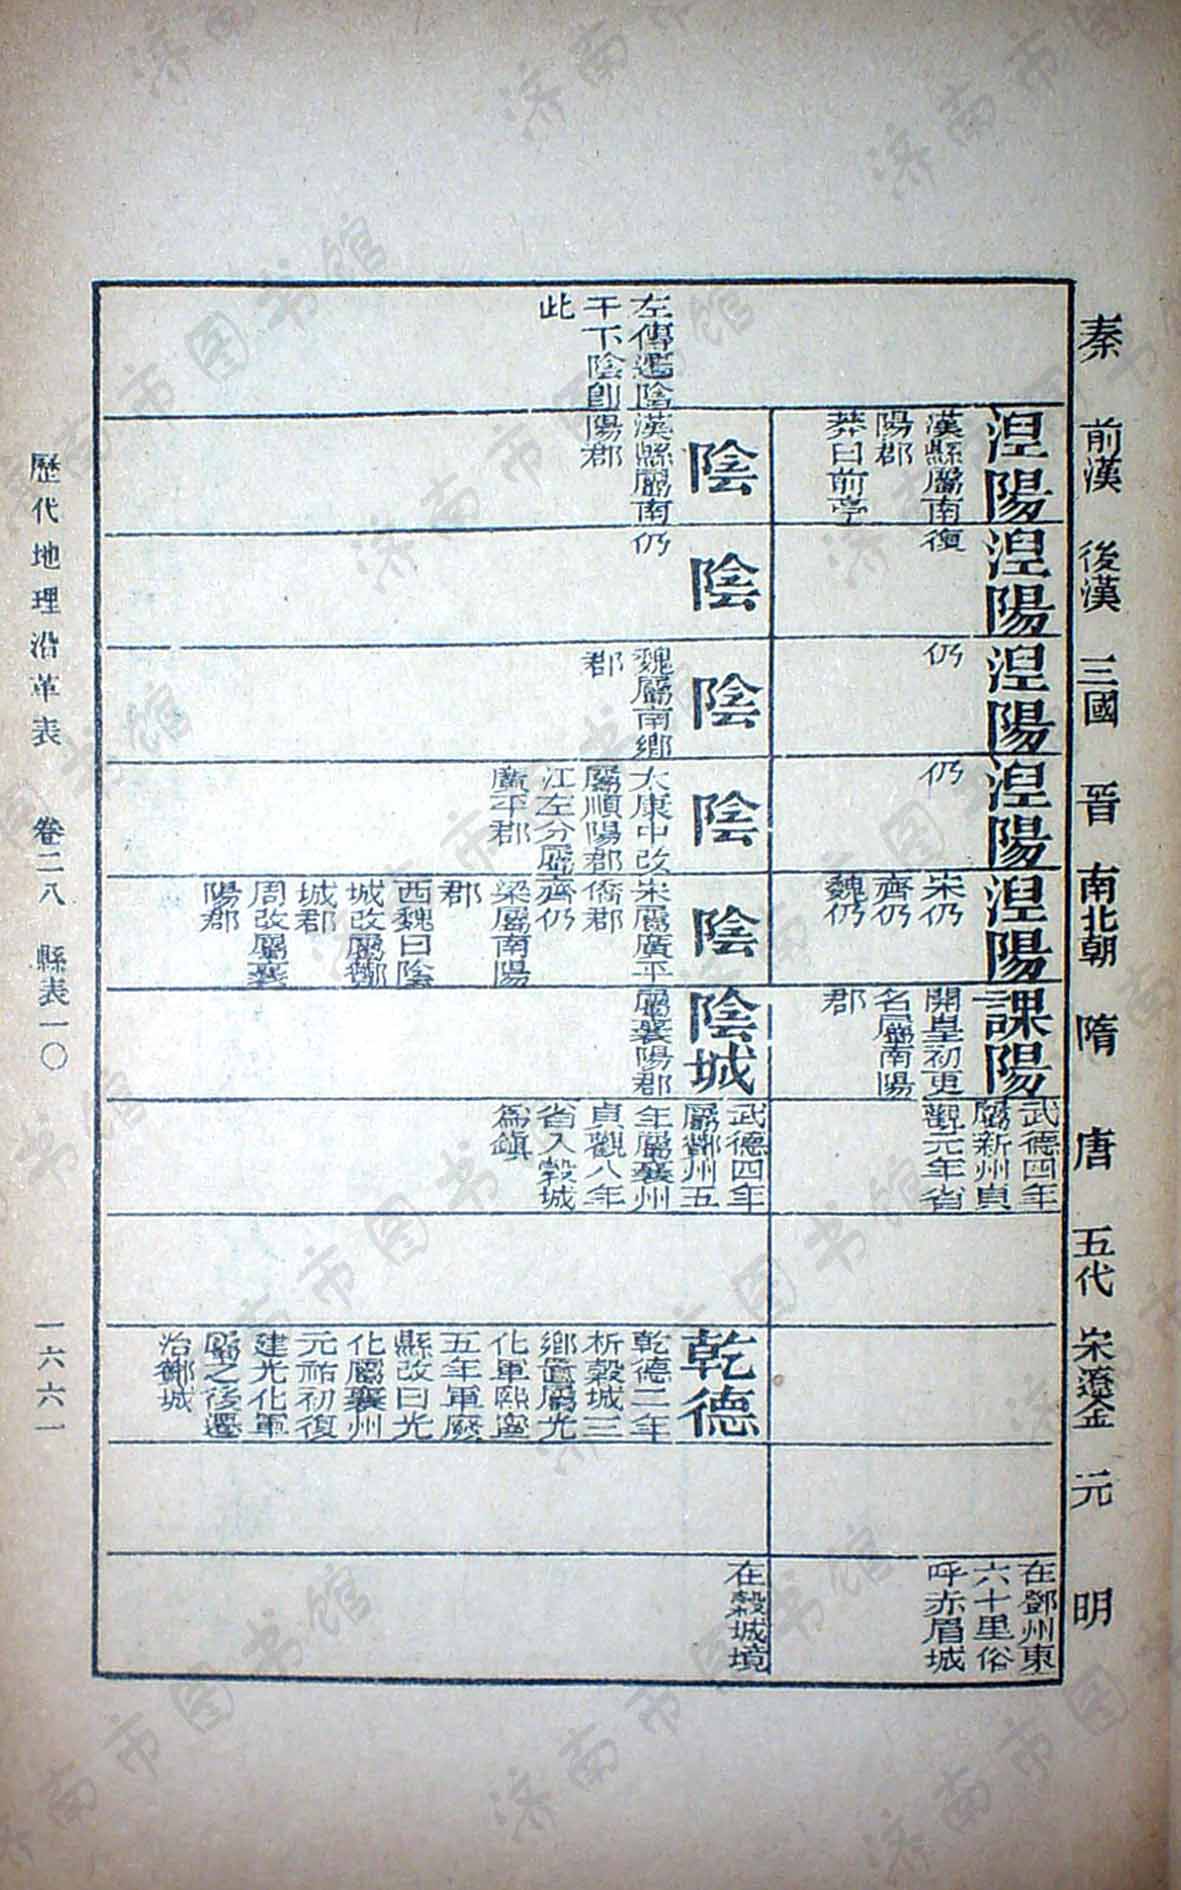 秦
前漢
後漢
三國
晉
南北朝
隋
唐
五代
宋遼金
元
明
涅陽
漢縣屬南
陽郡
莽曰前亭
涅陽
復
涅陽
仍
涅陽
仍
涅陽
宋仍
齊仍
魏仍
課陽
開皇初更
名屬南陽
郡
武德四年
屬新州貞
觀元年省
在鄧州東
六十里俗
呼赤眉城
左傳遷陰
于下陰卽
此
陰
漢縣屬南
陽郡
陰
仍
陰
魏屬南鄉
郡
陰
太康中改
屬順陽郡
江左分屬
廣平郡
陰
宋屬廣平
僑郡
齊仍
梁屬南陽
郡
西魏曰陰
城改屬酇
城郡
周改屬襄
陽郡
陰城
屬襄陽郡
武德四年
屬酇州五
年屬襄州
貞觀八年
省入穀城
爲鎮
乾德
乾德二年
析穀城三
鄉置屬光
化軍熙寧
五年軍廢
縣改曰光
化屬襄州
元祐初復
建光化軍
屬之後遷
治酇城
在穀城境
歷代地理沿革表 卷二八 縣表一〇 一六六一
济南市图书馆